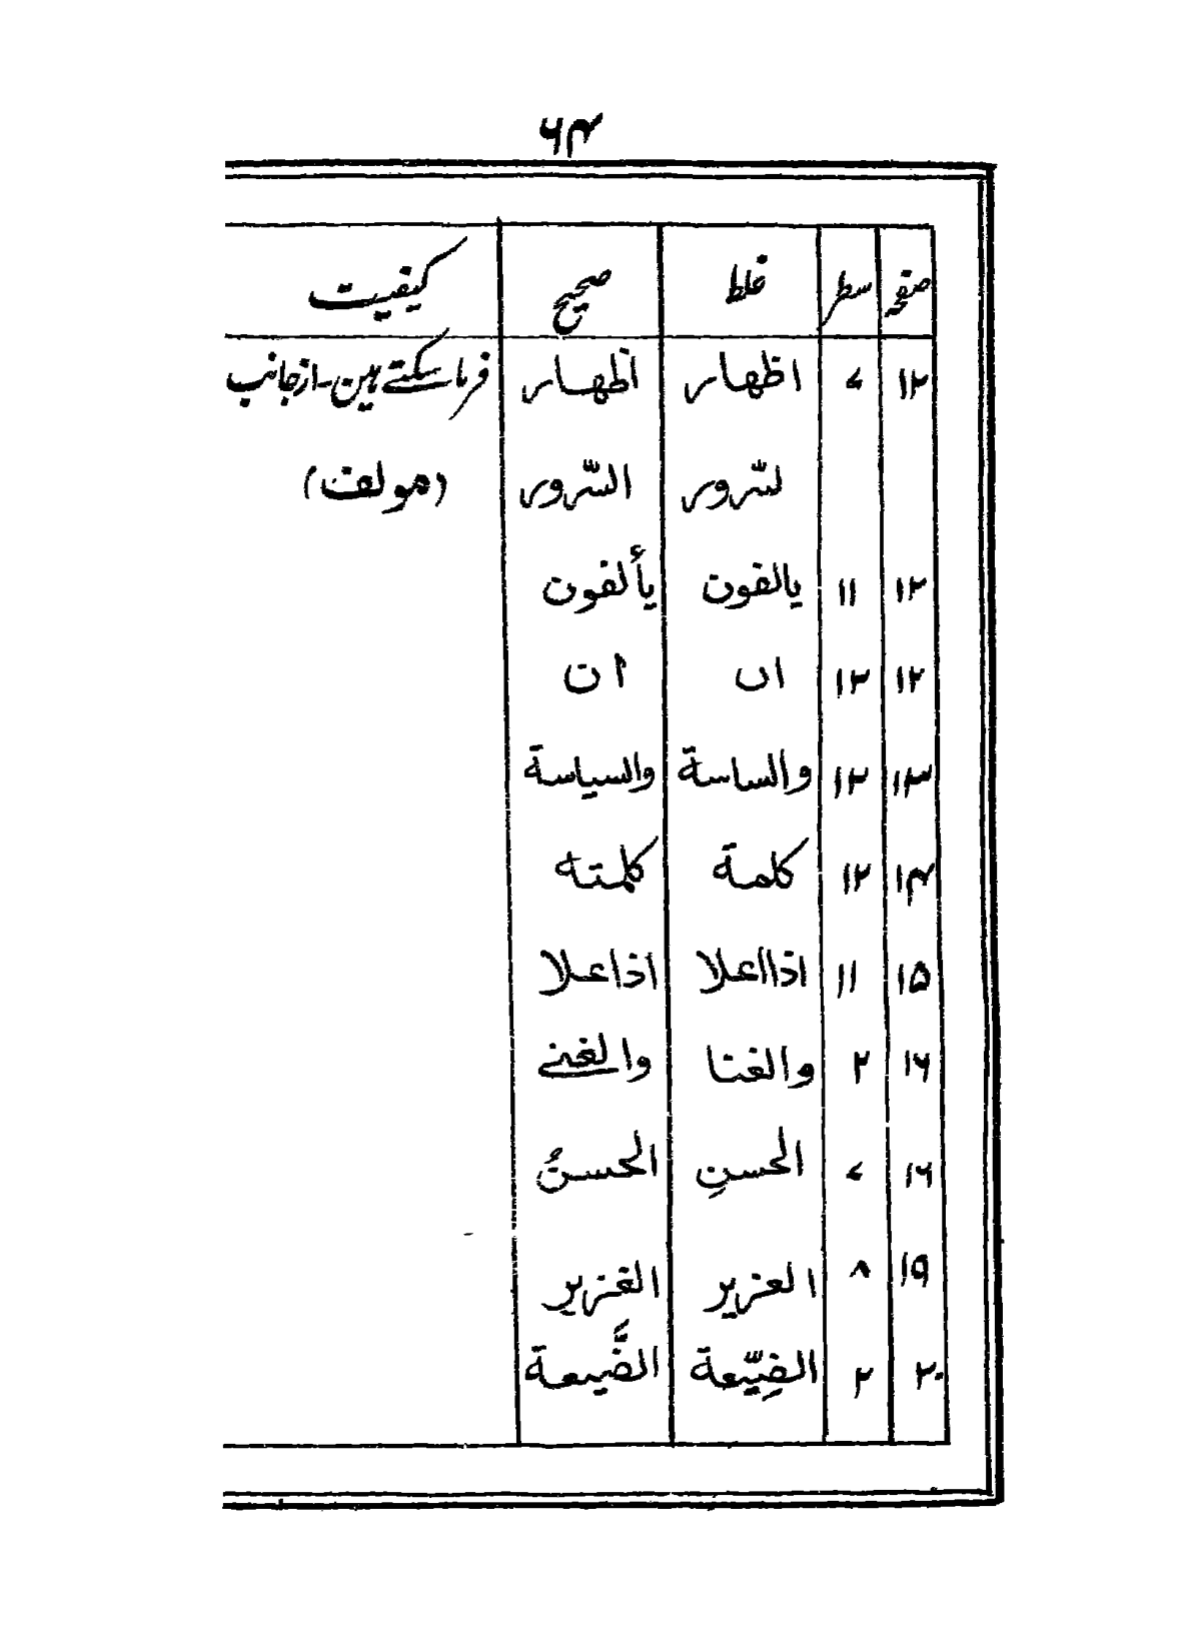 ۶۴
صفحہ سطر غلط صحیح کیفیت
۱۲ ۷ اظهار اظهار فرما سکتے ہین۔ازجانب
لسّرور السّرور (مولف)
۱۲ ۱۱ يالفون يألفون
۱۲ ۱۳ اں ان
۱۳ ۱۳ والساسة والسياسة
۱۴ ۱۲ كلمة كلمته
۱۵ ۱۱ اذااعلا اذاعلا
۱۶ ۲ والغنا والغنے
۱۶ ۷ الحسنِ الحسنُ
۱۹ ۸ العزير الغزير
۲۰ ۲ الضِيّعة الضَّيعة